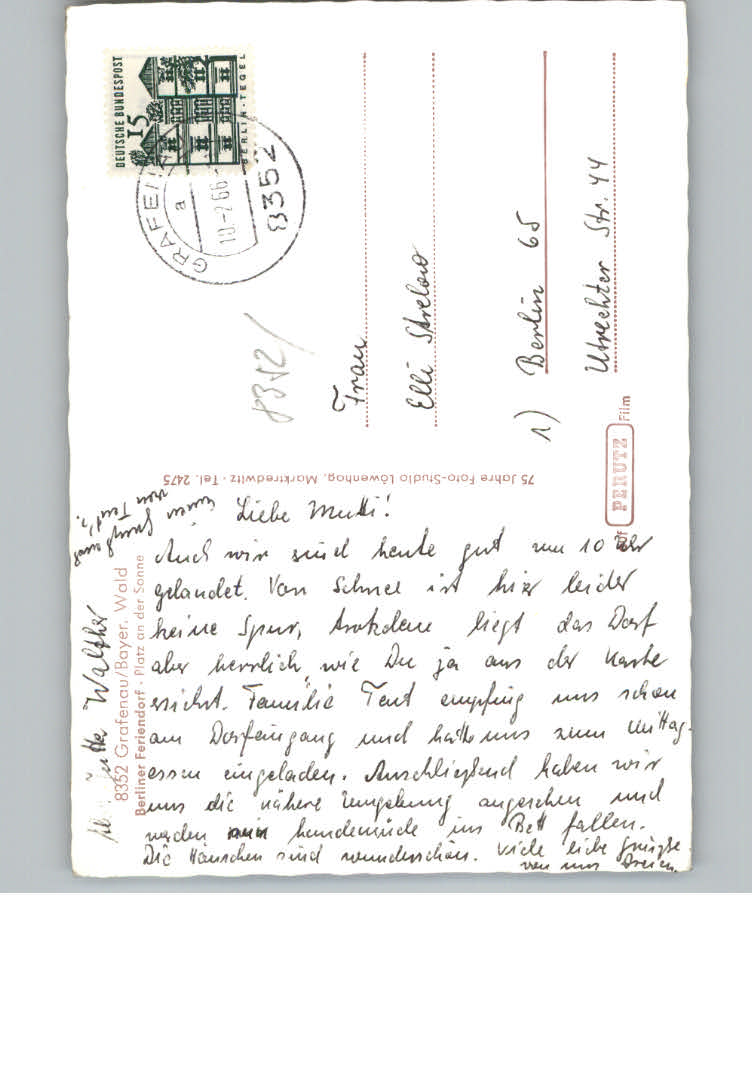 DEUTSCHE BUNDESPOST
15
BERLIN-TEGEL
GRAFEN
a
10.-2.66
8352
8352/
Frau
Elli Strelow
1) Berlin 65
Utrechter Str. 44
75 Jahre Foto-Studio Löwenhag, Marktredwitz · Tel. 2475
auf PERUTZ Film
8352 Grafenau/Bayer. Wald
Berliner Feriendorf · Platz an der Sonne
Liebe Mutti!
Auch wir sind heute gut um 10 Uhr
gelandet. Von Schnee ist hier leider
keine Spur, trotzdem liegt das Dorf
aber herrlich, wie Du ja aus der Karte
ersiehst. Familie Tent empfing uns schon
am Dorfeingang und hatte uns zum Mittag-
essen eingeladen. Anschließend haben wir
uns die nähere Umgebung angesehen und
werden nun hundemüde ins Bett fallen.
Die Häuschen sind wunderschön. Viele liebe Grüße
von uns Dreien.
Jutta Walther
von Tent's.